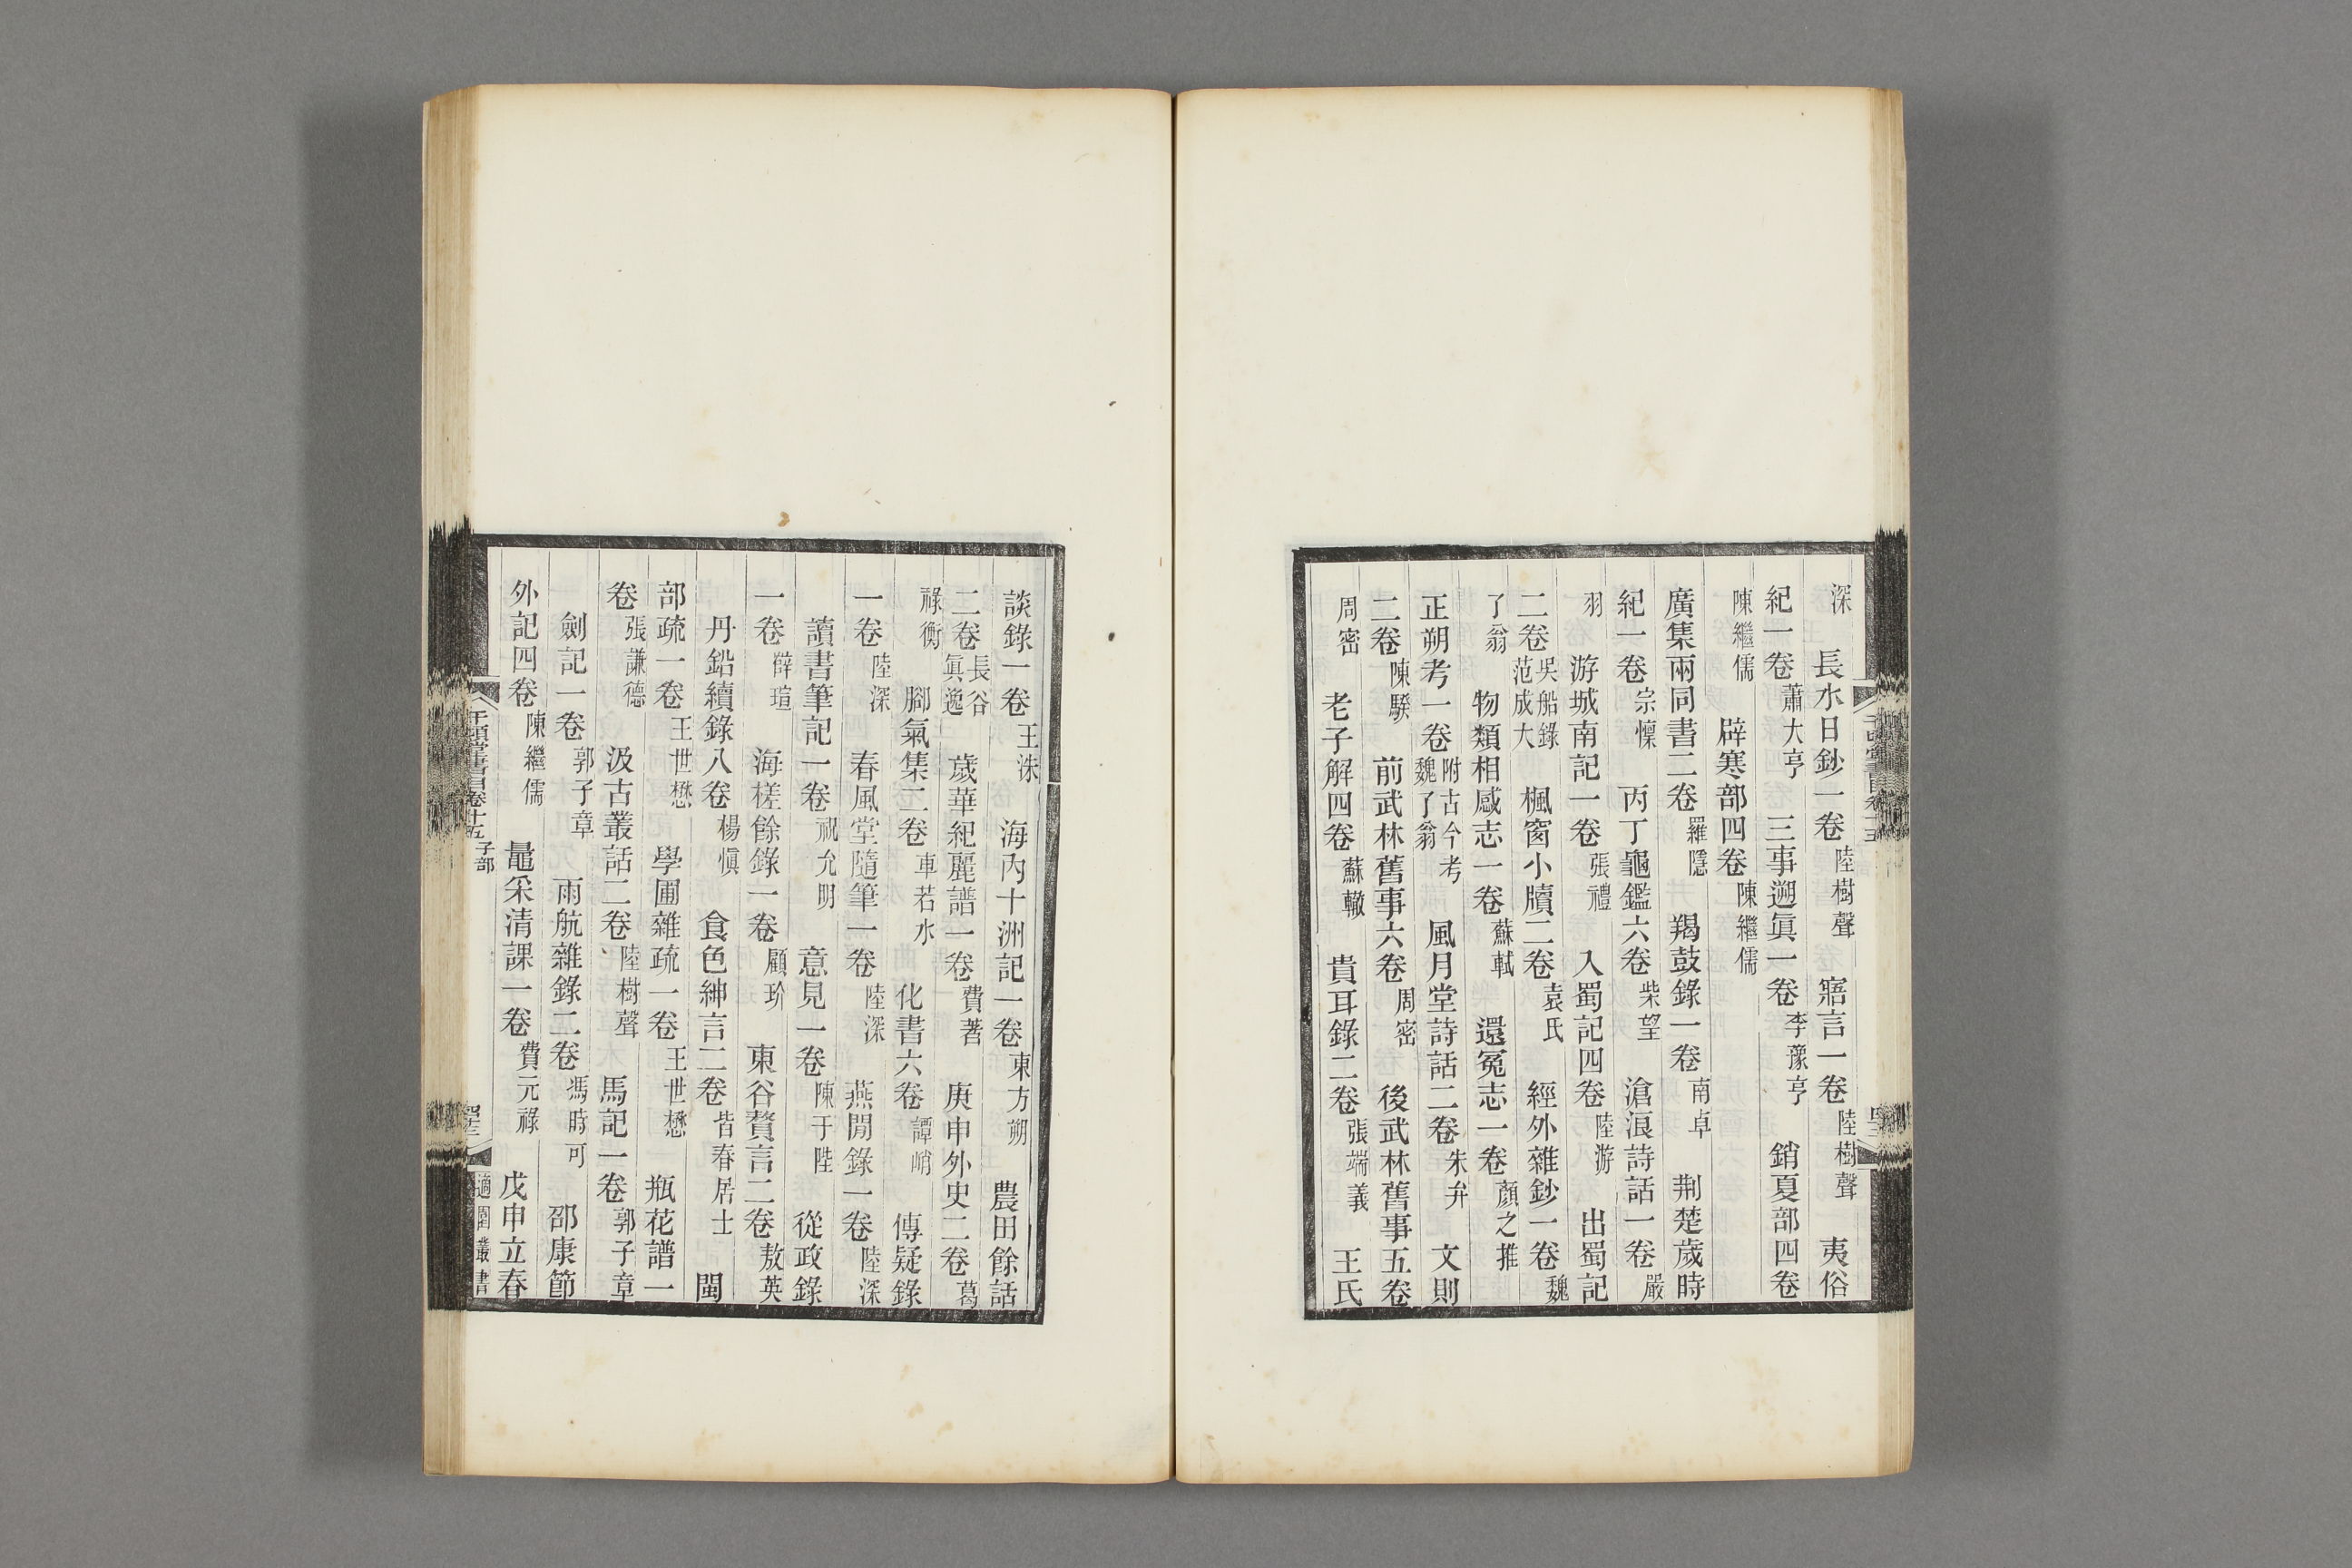 深　長水日鈔一卷陸樹聲　寤言一卷陸樹聲　夷俗
紀一卷蕭大亨　三事遡眞一卷李豫亨　銷夏部四卷
陳繼儒　辟寒部四卷陳繼儒
廣集兩同書二卷羅隱　羯鼓錄一卷南卓　荆楚歲時
紀一卷宗懍　丙丁龜鑑六卷柴望　滄浪詩話一卷嚴
羽　游城南記一卷張禮　入蜀記四卷陸游　出蜀記
二卷吳船錄范成大　楓窗小牘二卷袁氏　經外雜鈔一卷魏
了翁　物類相感志一卷蘇軾　還冤志一卷顏之推
正朔考一卷附古今考魏了翁　風月堂詩話二卷朱弁　文則
二卷陳騤　前武林舊事六卷周密　後武林舊事五卷
周密　老子解四卷蘇轍　貴耳錄二卷張端義　王氏
談錄一卷王洙　海內十洲記一卷東方朔　農田餘話
二卷長谷眞逸　歲華紀麗譜一卷費著　庚申外史二卷葛
祿衡　腳氣集二卷車若水　化書六卷譚峭　傳疑錄
一卷陸深　春風堂隨筆一卷陸深　燕閒錄一卷陸深
讀書筆記一卷祝允明　意見一卷陳于陛　從政錄
一卷薛瑄　海槎餘錄一卷顧玠　東谷贅言二卷敖英
丹鉛續錄八卷楊愼　食色紳言二卷皆春居士　閩
部疏一卷王世懋　學圃雜疏一卷王世懋　瓶花譜一
卷張謙德　汲古叢話二卷陸樹聲　馬記一卷郭子章
劍記一卷郭子章　雨航雜錄二卷馮時可　邵康節
外記四卷陳繼儒　鼂采清課一卷費元祿　戊申立春
千頃堂書目卷十五子部
適園叢書